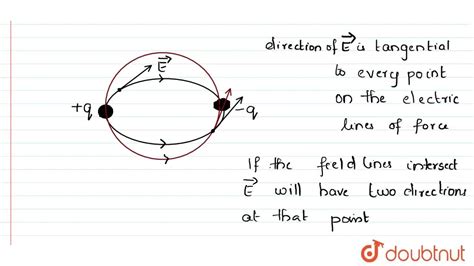 direction of E⃗ is tangential
to every point
on the electric
lines of force
E⃗
+q
-q
If the feeld lines intersect
E⃗ will have two directions
at that point
doubtnut